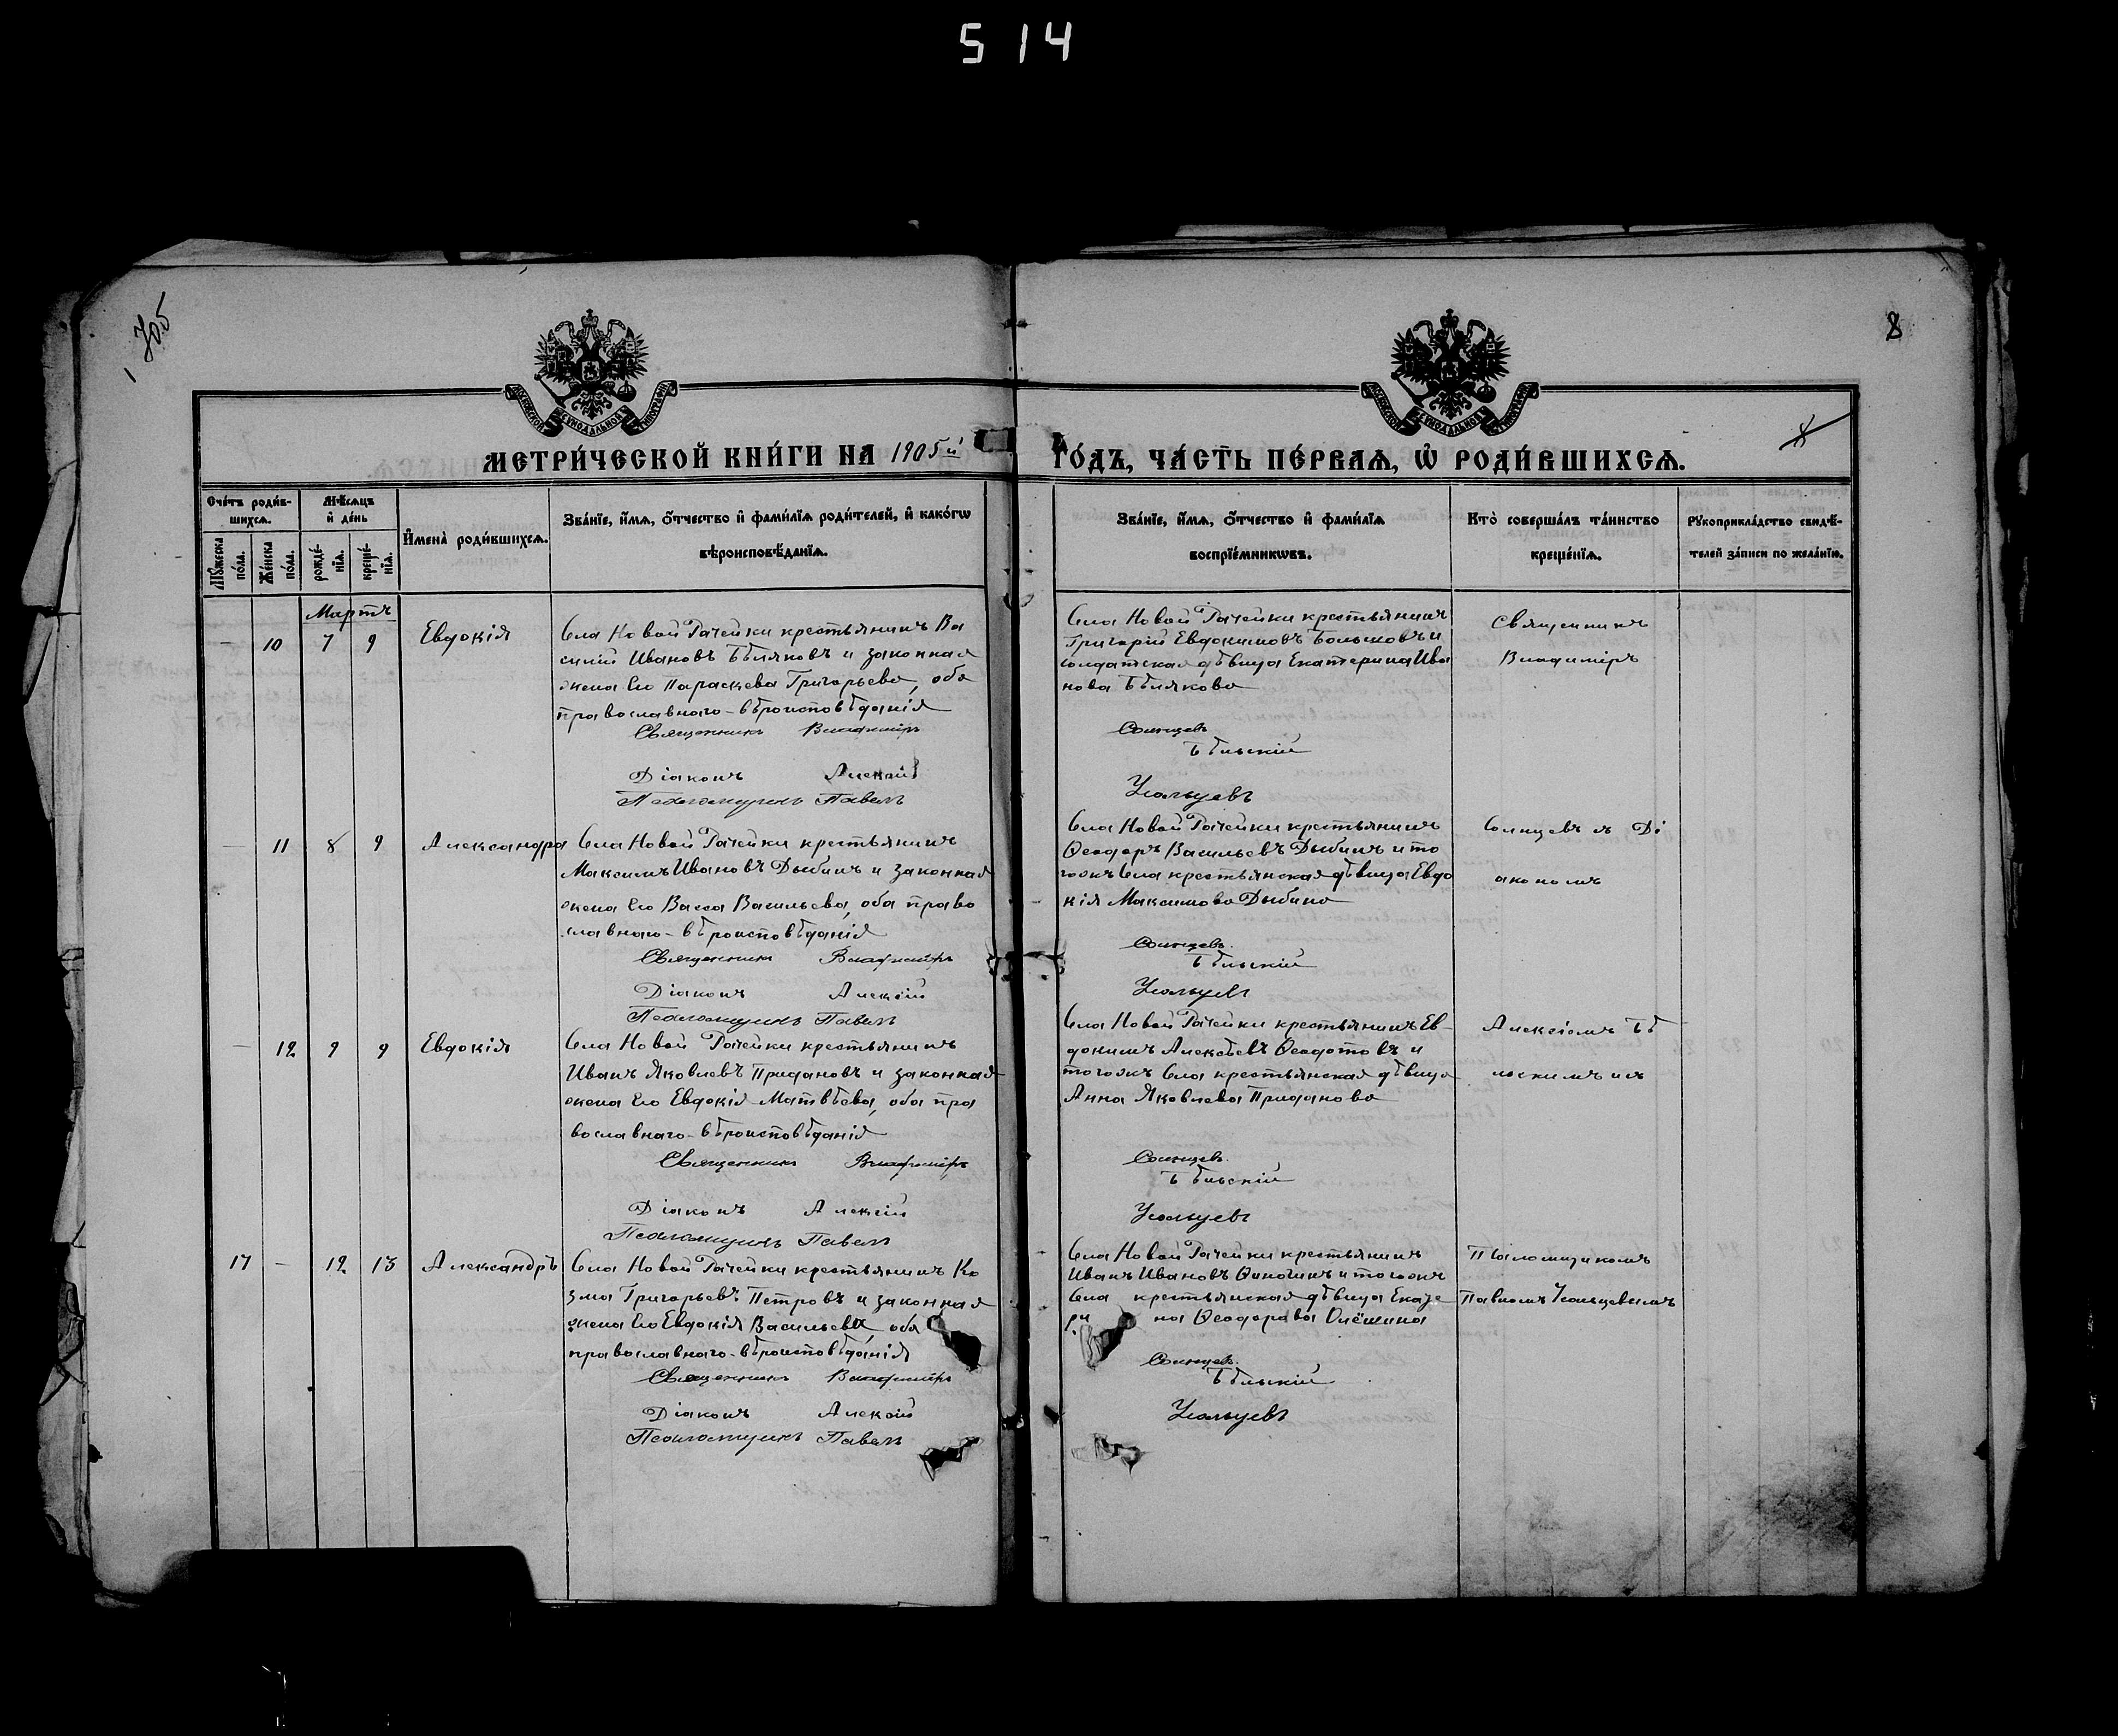 514
705
8
МОСКОВСКОЙ СѴНОДАЛЬНОЙ ТИПОГРАФІИ
МОСКОВСКОЙ СѴНОДАЛЬНОЙ ТИПОГРАФІИ
МЕТРИ́ЧЕСКОЙ КНИ́ГИ НА 1905й
ГО́ДЪ, ЧА́СТЬ ПЕ́РВАѦ, Ѡ҆ РОДИ́ВШИХСѦ.
Сче́тъ роди́в-
шихсѧ.
Мꙋ́жеска по́ла.
Же́нска по́ла.
Мѣ́сѧцъ
и҆ де́нь
рожде́-
нїѧ.
креще́-
нїѧ.
И҆мена̀ роди́вшихсѧ.
Зва́нїе, и҆́мѧ, ѻ҆́тчество и҆ фами́лїѧ роди́телей, и҆ како́гѡ
вѣроисповѣ́данїѧ.
Зва́нїе, и҆́мѧ, ѻ҆́тчество и҆ фами́лїѧ
воспрїе́мникѡвъ.
Кто̀ соверша́лъ та́инство
креще́нїѧ.
Рꙋкоприкла́дство свидѣ́-
телей за́писи по жела́нїю.
Мартъ
— 10 7 9 Евдокія
Села Новой Рачейки крестьянинъ Ва
силій Ивановъ Бѣляковъ и законная
жена его Параскева Григорьева, оба
православнаго-вѣроисповѣданія
Священникъ Владиміръ
Діаконъ Алексій
Псаломщикъ Павелъ
Села Новой Рачейки крестьянинъ
Григорій Евдокимовъ Большовъ и
солдатская дѣвица Екатерина Ива
нова Бѣлякова
Солнцевъ
Бѣльскій
Усольцевъ
Священникъ
Владиміръ
— 11 8 9 Александра
Села Новой Рачейки крестьянинъ
Максимъ Ивановъ Дыбинъ и законная
жена его Васса Васильева, оба право
славнаго-вѣроисповѣданія
Священникъ Владиміръ
Діаконъ Алексій
Псаломщикъ Павелъ
Села Новой Рачейки крестьянинъ
Ѳеодоръ Васильевъ Дыбинъ и то
гожъ села крестьянская дѣвица Евдо
кія Максимова Дыбина
Солнцевъ.
Бѣльскій
Усольцевъ
Солнцевъ съ Ді
акономъ
— 12 9 9 Евдокія
Села Новой Рачейки крестьянинъ
Иванъ Яковлевъ Придановъ и законная
жена его Евдокія Матвѣева, оба пра
вославнаго-вѣроисповѣданія
Священникъ Владиміръ
Діаконъ Алексій
Псаломщикъ Павелъ
Села Новой Рачейки крестьянинъ Ев-
докимъ Алексѣевъ Ѳеодотовъ и
тогожъ села крестьянская дѣвица
Анна Яковлева Приданова
Солнцевъ.
Бѣльскій
Усольцевъ
Алексіемъ Бѣ
льскимъ и съ
17 — 12 13 Александръ
Села Новой Рачейки крестьянинъ Ко
зма Григорьевъ Петровъ и законная
жена его Евдокія Васильева оба
православнаго-вѣроисповѣданія
Священникъ Владиміръ
Діаконъ Алексій
Псаломщикъ Павелъ
Села Новой Рачейки крестьянинъ
Иванъ Ивановъ и тогожъ
села крестьянская дѣвица Екате
рина Ѳеодорова
Солнцевъ.
Бѣльскій
Усольцевъ
Псаломщикомъ
Павломъ Усольцевымъ